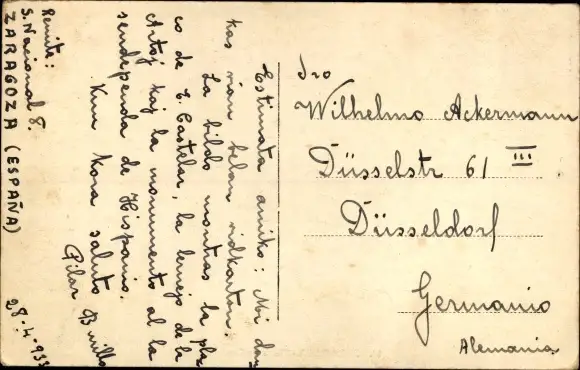 Estimata amiko: Mi dan
kas vian belan vidkarton.
La bildo montras la pla
co de E. Castelar, la lernejo de la
Artoj kaj la monumento al la
sendependa de Hispanio.
Kun kora saluto
Pilar
Remite:
S. Nacional 8.
ZARAGOZA (ESPAÑA)
28-4-933
Sro
Wilhelmo Ackermann
Düsselstr 61 III
Düsseldorf
Germanio
Alemania